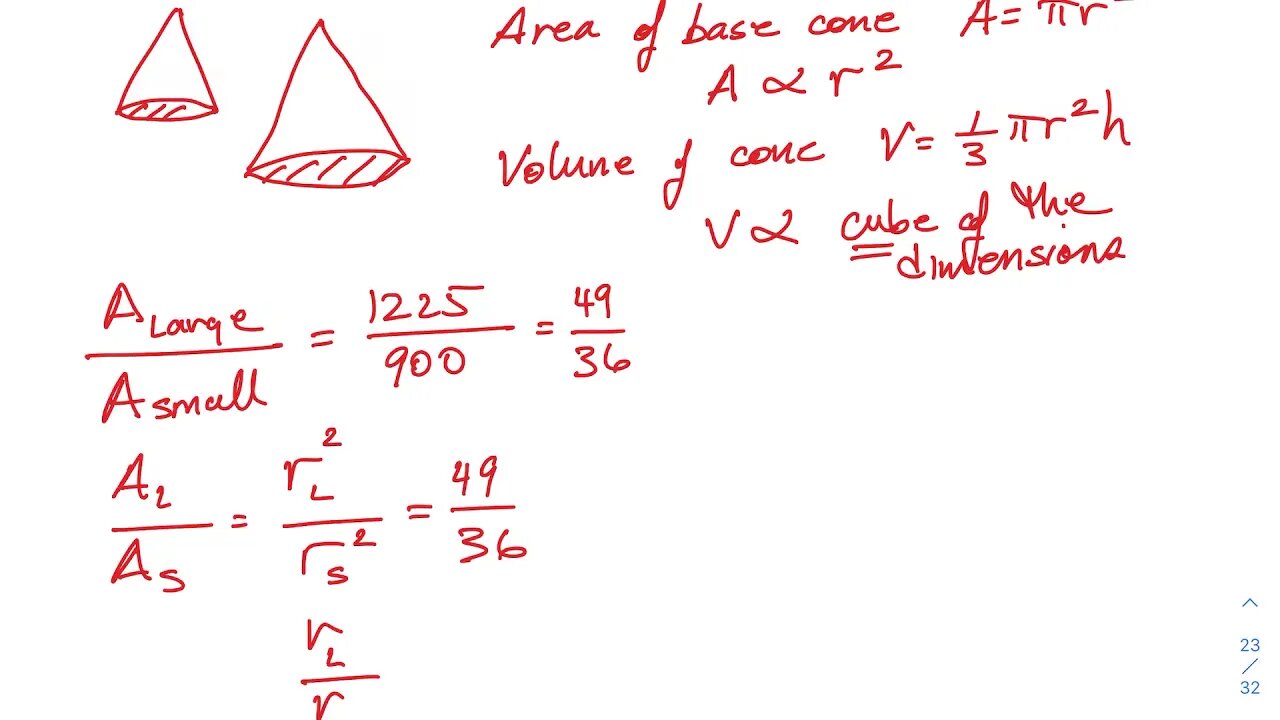 Area of base cone A = πr²
A ∝ r²
Volume of cone V = 1/3 πr²h
V ∝ cube of the
dimensions
A Large / A small = 1225 / 900 = 49 / 36
A L / A S = r L ² / r S ² = 49 / 36
r L / r
23
/
32